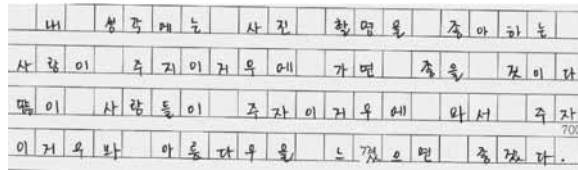 내 생각에는 사진 촬영을 좋아하는
사람이 주지이거우에 가면 좋을 것이다
많이 사람들이 주자이거우에 와서 주자
700
이거우와 아름다우을 느꼈으면 좋겠다.